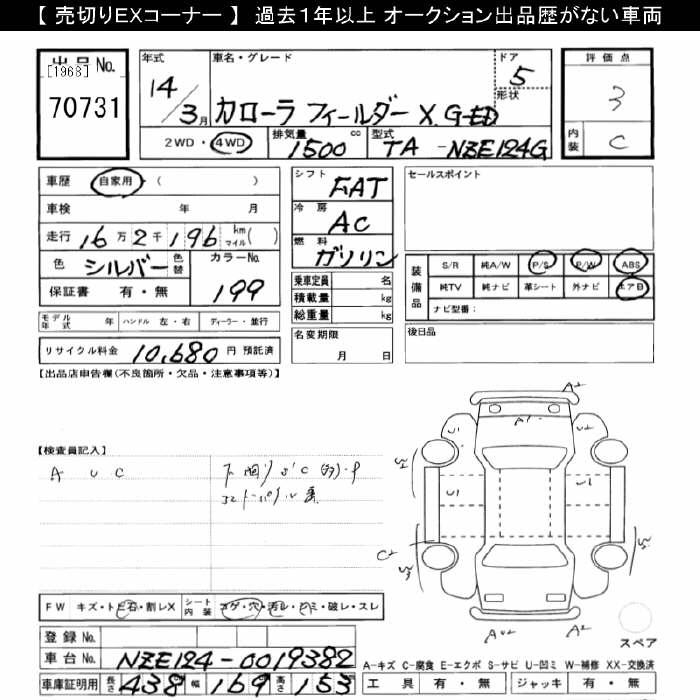 【 売切りEXコーナー 】 過去1年以上 オークション出品歴がない車両
出品 No.
[1968]
70731
年式
14/3月
車名・グレード
カローラ フィールダー X.G-ED
ドア
5
形状
評価点
3
内装
C
2WD・4WD
排気量
1500
cc
型式
TA -NZE124G
車歴
自家用・( )
車検 年 月
走行 16万2千196 km マイル( )
色 シルバー 色替
カラーNo.
199
保証書 有・無
モデル年式 年
ハンドル 左・右
ディーラー・並行
リサイクル料金 10,680 円 預託済
シフト
FAT
冷房
AC
燃料
ガソリン
乗車定員 名
積載量 kg
総重量 kg
名変期限
月 日
セールスポイント
装備品
S/R 純A/W P/S P/W ABS
純TV 純ナビ 革シート 外ナビ エアB
ナビ型番:
後日品
【出品店申告欄(不良箇所・欠品・注意事項等)】
【検査員記入】
A U C
FW キズ・トビ石・割レX
シート内装 コゲ・穴・汚レ・シミ・破レ・スレ
登録 No.
車台 No. NZE124-0019382
車庫証明用 長さ 438 幅 169 高さ 153
A2
A1
U1
U2
U1
U1
C2
A2
スペア
A-キズ C-腐食 E-エクボ S-サビ U-凹ミ W-補修 XX-交換済
工具 有・無 ジャッキ 有・無